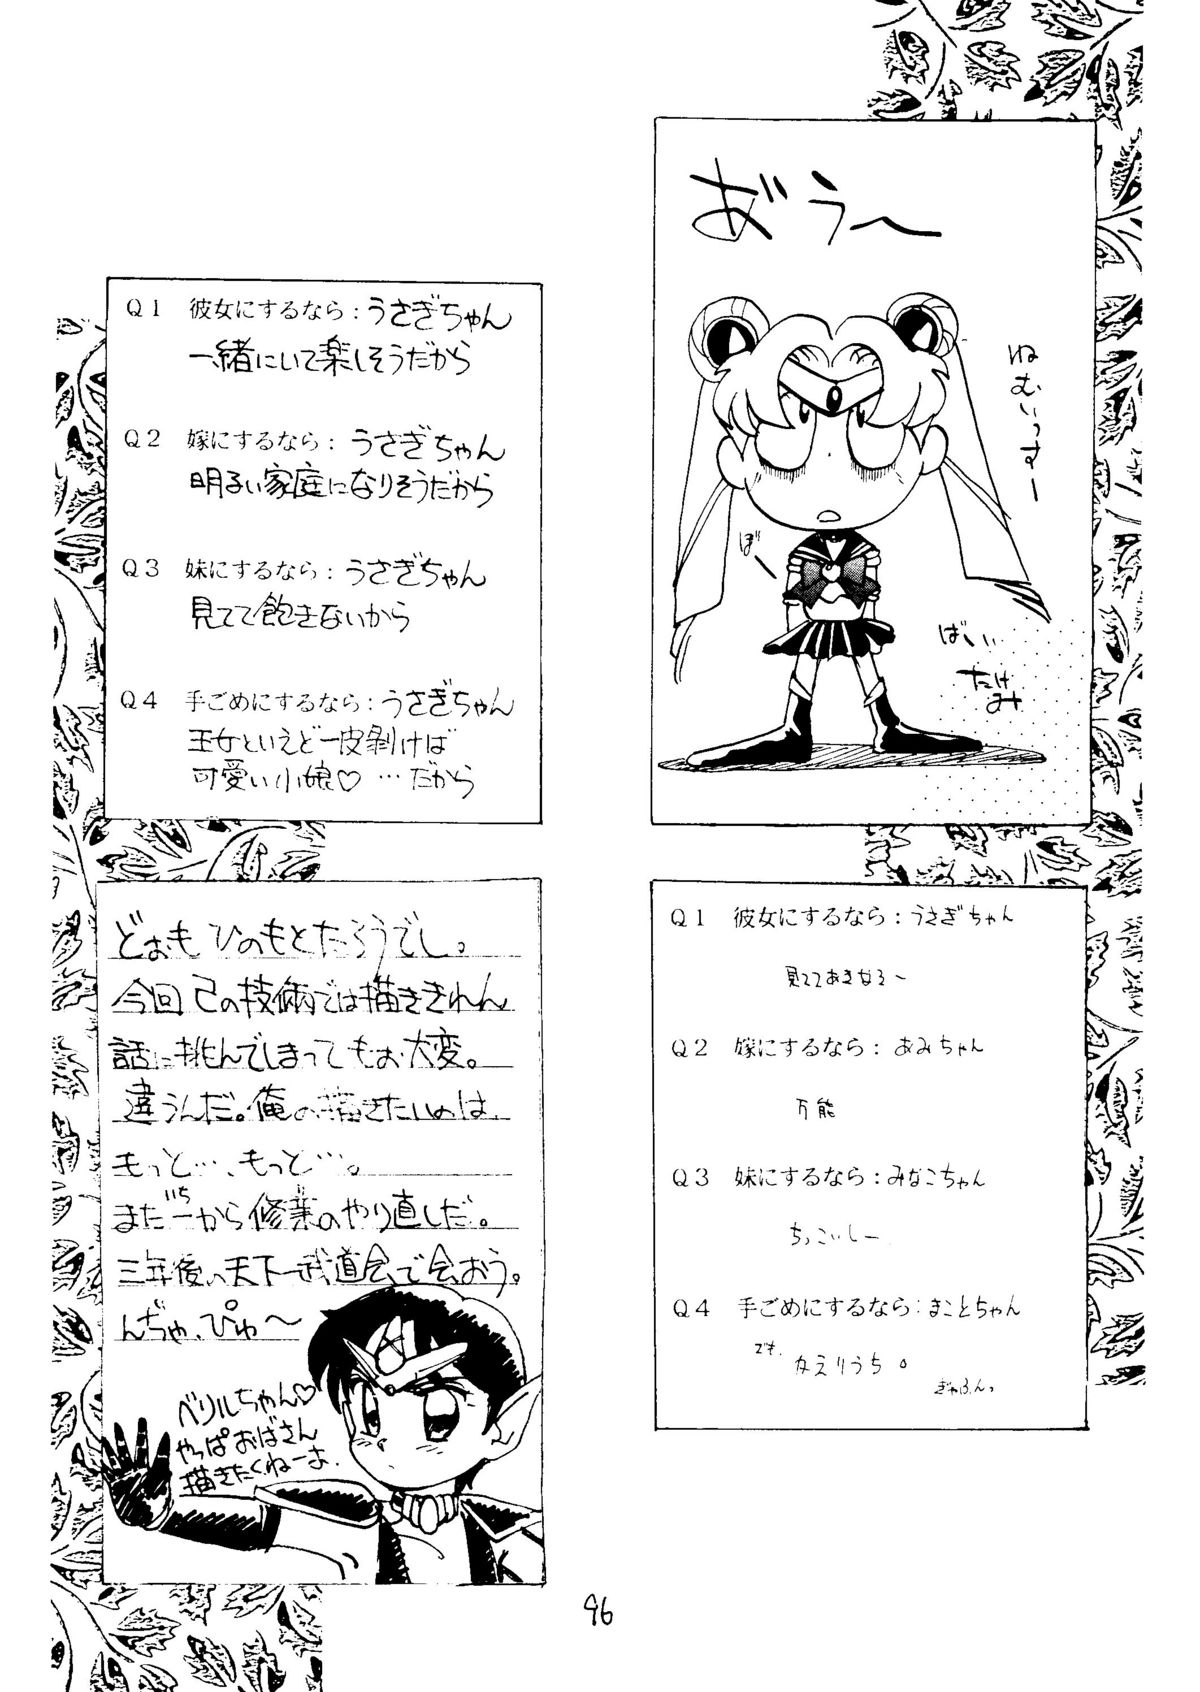 おう〜
ねむいっすー
ぼー
ばいい
たけ
み
Q1 彼女にするなら：うさぎちゃん
見ててあきなそ〜
Q2 嫁にするなら：あみちゃん
万能
Q3 妹にするなら：みなこちゃん
ちっこいしー
Q4 手ごめにするなら：まことちゃん
でも、
かえりうち。
ぎゃふんっ
Q1 彼女にするなら：うさぎちゃん
一緒にいて楽しそうだから
Q2 嫁にするなら：うさぎちゃん
明るい家庭になりそうだから
Q3 妹にするなら：うさぎちゃん
見てて飽きないから
Q4 手ごめにするなら：うさぎちゃん
王女といえど一皮剥けば
可愛い小娘♡…だから
どぉも ひのもとたろうでし。
今回 己の技術では描ききれん
話に挑んでしまってもぉ大変。
違うんだ。俺の描きたいのは
もっと…、もっと…。
まだ一からいち修業のやり直しだ。
三年後の天下一武道会で会おう。
んぢゃ、ぴゅ〜
ベリルちゃん♡
やっぱおばさん
描きたくねーよ.
96